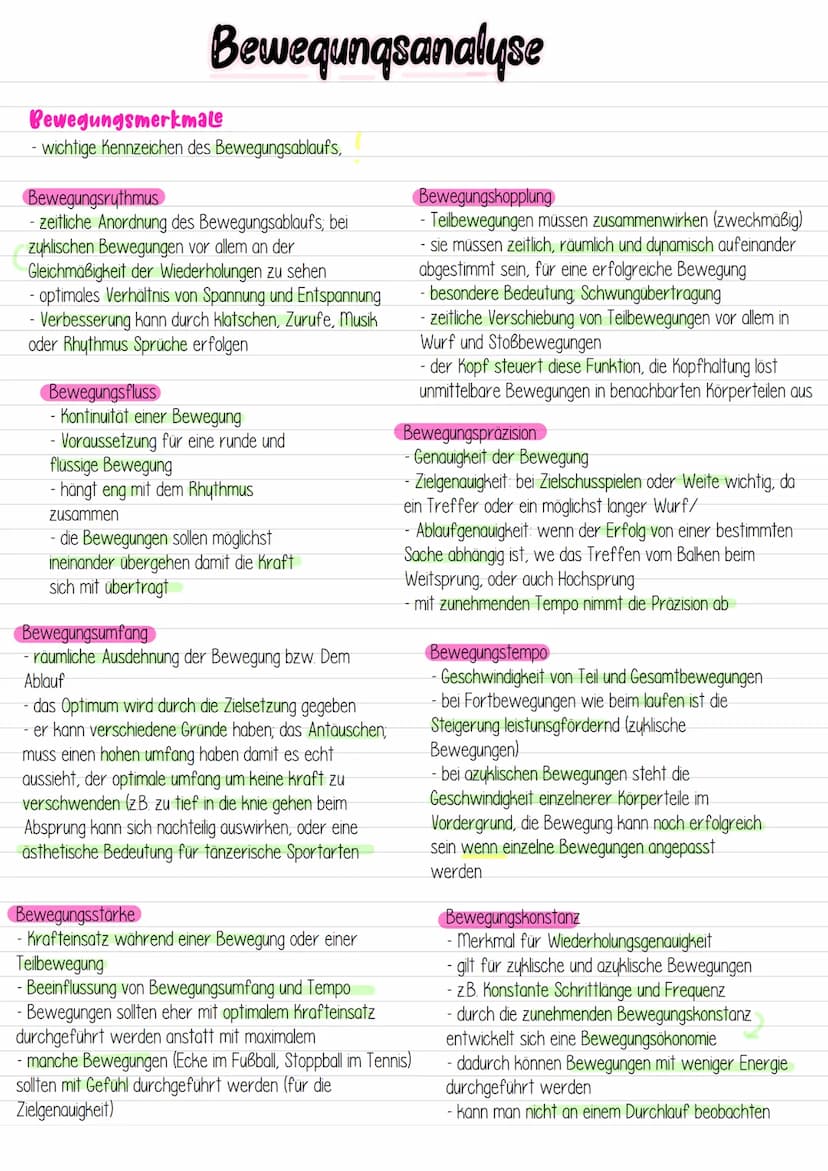 Bewegungsanalyse
Bewegungsmerkmale
- wichtige Kennzeichen des Bewegungsablaufs, !
Bewegungsrythmus
- zeitliche Anordnung des Bewegungsablaufs; bei
zyklischen Bewegungen vor allem an der
Gleichmäßigkeit der Wiederholungen zu sehen
- optimales Verhältnis von Spannung und Entspannung
- Verbesserung kann durch klatschen, Zurufe, Musik
oder Rhythmus Sprüche erfolgen
Bewegungsfluss
- Kontinuität einer Bewegung
- Voraussetzung für eine runde und
flüssige Bewegung
- hängt eng mit dem Rhythmus
zusammen
- die Bewegungen sollen möglichst
ineinander übergehen damit die Kraft
sich mit überträgt
Bewegungsumfang
- räumliche Ausdehnung der Bewegung bzw. Dem
Ablauf
- das Optimum wird durch die Zielsetzung gegeben
- er kann verschiedene Gründe haben; das Antäuschen;
muss einen hohen umfang haben damit es echt
aussieht, der optimale umfang um keine kraft zu
verschwenden (z.B. zu tief in die knie gehen beim
Absprung kann sich nachteilig auswirken, oder eine
ästhetische Bedeutung für tänzerische Sportarten
Bewegungsstärke
- Krafteinsatz während einer Bewegung oder einer
Teilbewegung
- Beeinflussung von Bewegungsumfang und Tempo
- Bewegungen sollten eher mit optimalem Krafteinsatz
durchgeführt werden anstatt mit maximalem
- manche Bewegungen (Ecke im Fußball, Stoppball im Tennis)
sollten mit Gefühl durchgeführt werden (für die
Zielgenauigkeit)
Bewegungskopplung
- Teilbewegungen müssen zusammenwirken (zweckmäßig)
- sie müssen zeitlich, räumlich und dynamisch aufeinander
abgestimmt sein, für eine erfolgreiche Bewegung
- besondere Bedeutung; Schwungübertragung
- zeitliche Verschiebung von Teilbewegungen vor allem in
Wurf und Stoßbewegungen
- der Kopf steuert diese Funktion, die Kopfhaltung löst
unmittelbare Bewegungen in benachbarten Körperteilen aus
Bewegungspräzision
- Genauigkeit der Bewegung
- Zielgenauigkeit: bei Zielschusspielen oder Weite wichtig, da
ein Treffer oder ein möglichst langer Wurf/
- Ablaufgenauigkeit: wenn der Erfolg von einer bestimmten
Sache abhängig ist, we das Treffen vom Balken beim
Weitsprung, oder auch Hochsprung
- mit zunehmenden Tempo nimmt die Präzision ab
Bewegungstempo
- Geschwindigkeit von Teil und Gesamtbewegungen
- bei Fortbewegungen wie beim laufen ist die
Steigerung leistunsgfördernd (zyklische
Bewegungen)
- bei azyklischen Bewegungen steht die
Geschwindigkeit einzelnerer Körperteile im
Vordergrund, die Bewegung kann noch erfolgreich
sein wenn einzelne Bewegungen angepasst
werden
Bewegungskonstanz
- Merkmal für Wiederholungsgenauigkeit
- gilt für zyklische und azyklische Bewegungen
- z.B. Konstante Schrittlänge und Frequenz
- durch die zunehmenden Bewegungskonstanz
entwickelt sich eine Bewegungsökonomie
- dadurch können Bewegungen mit weniger Energie
durchgeführt werden
- kann man nicht an einem Durchlauf beobachten